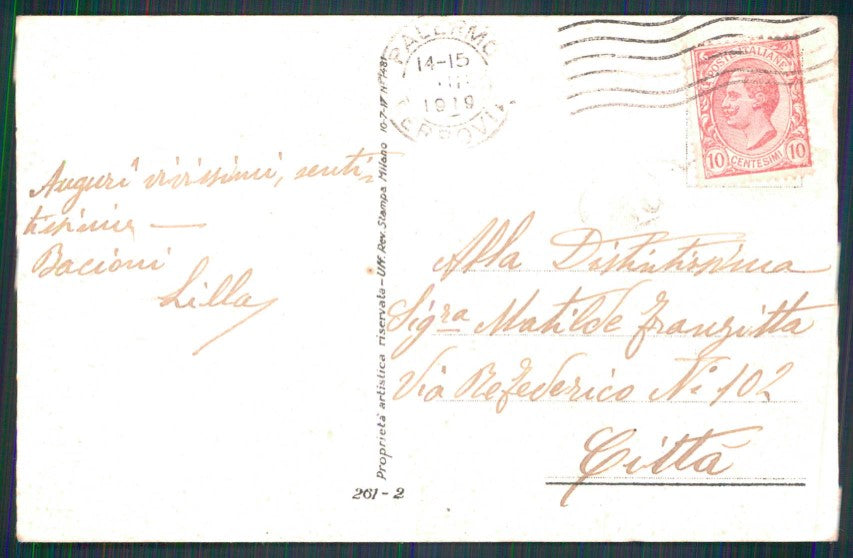 PALERMO
14-15
III
1919
FERROVIA
POSTE ITALIANE
10 CENTESIMI 10
Auguri vivissimi, senti-
tissimi —
Bacioni
Lilla
Proprietà artistica riservata - Uff. Rev. Stampa Milano 10-7-17 No 1481
Alla Distintissima
Sigra Matilde Franzitta
Via Re Federico N. 102
Città
261-2